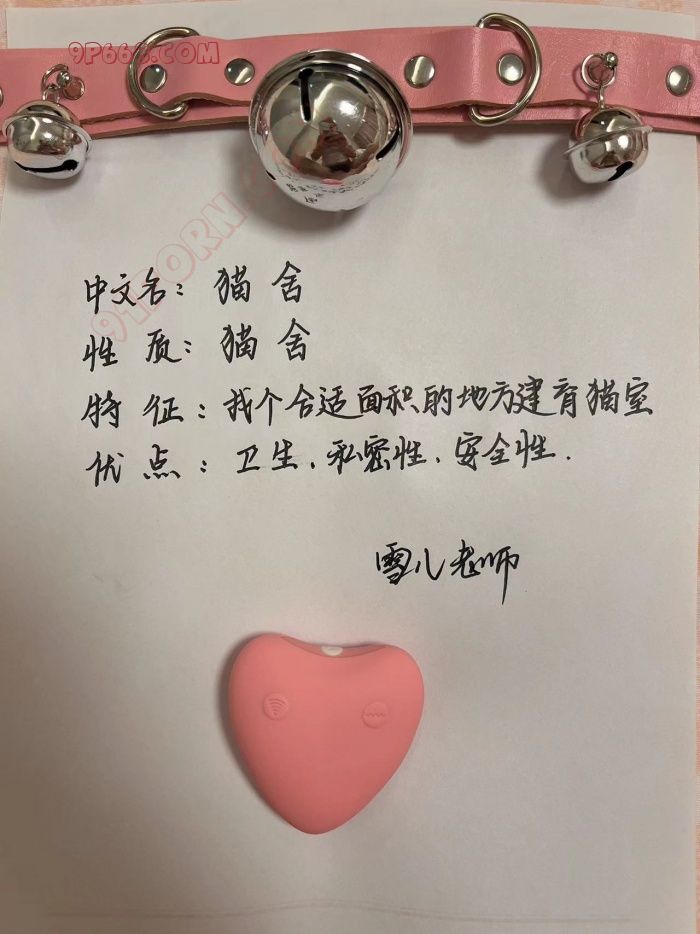 9P666.COM
中文名：猫舍
性质：猫舍
特征：找个合适面积的地方建育猫室
优点：卫生、私密性、安全性.
雪儿老师